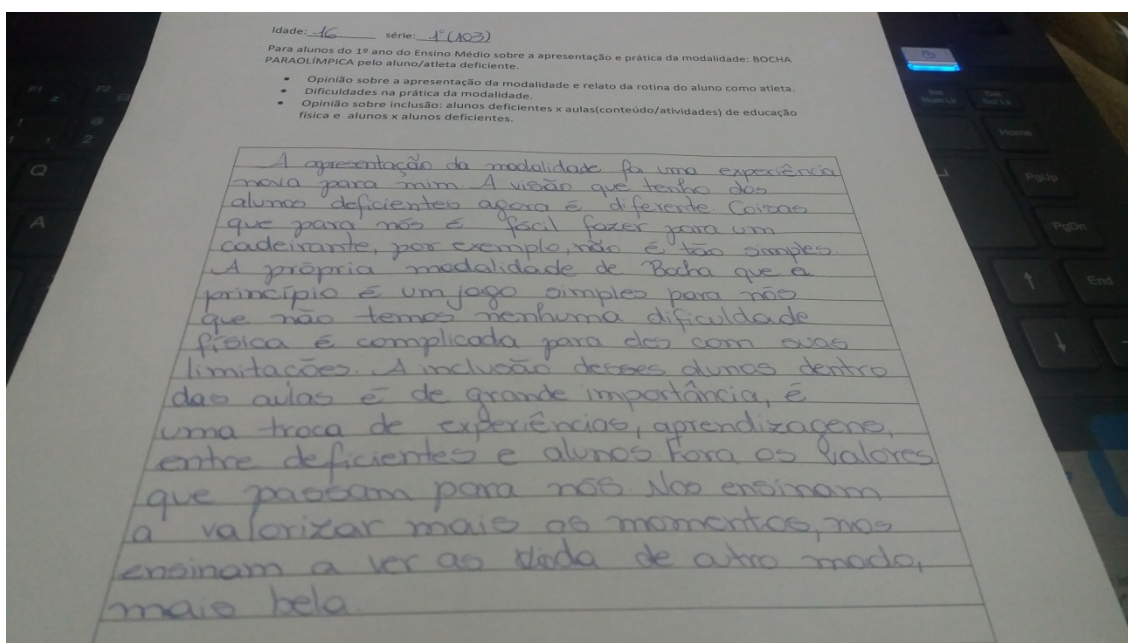 Idade: 16 série: 1º (103)
Para alunos do 1º ano do Ensino Médio sobre a apresentação e prática da modalidade: BOCHA
PARAOLÍMPICA pelo aluno/atleta deficiente.
• Opinião sobre a apresentação da modalidade e relato da rotina do aluno como atleta.
• Dificuldades na prática da modalidade.
• Opinião sobre inclusão: alunos deficientes x aulas(conteúdo/atividades) de educação
física e alunos x alunos deficientes.
A apresentação da modalidade foi uma experiência
nova para mim A visão que tenho dos
alunos deficientes agora é diferente. Coisas
que para nós é fácil fazer para um
cadeirante, por exemplo, não é tão simples.
A própria modalidade de Bocha que a
princípio é um jogo simples para nós
que não temos nenhuma dificuldade
física é complicada para eles com suas
limitações. A inclusão desses alunos dentro
das aulas é de grande importância, é
uma troca de experiências, aprendizagens,
entre deficientes e alunos fora os valores
que passam para nós. Nos ensinam
a valorizar mais os momentos, nos
ensinam a ver as vida de outro modo,
mais bela.
Q
A
1
2
Home
PgUp
PgDn
End